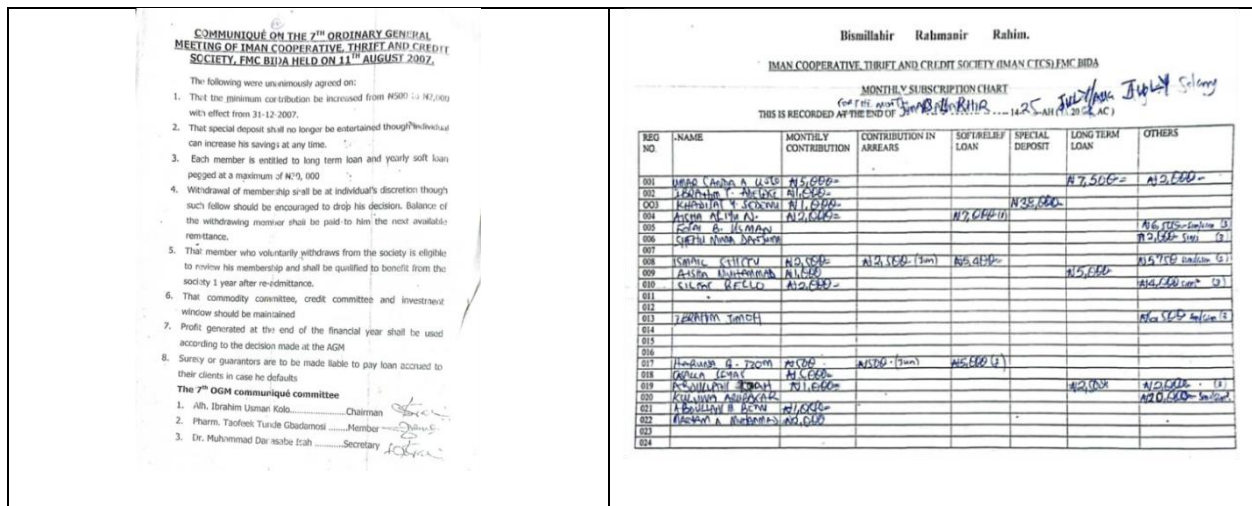 COMMUNIQUÉ ON THE 7TH ORDINARY GENERAL
MEETING OF IMAN COOPERATIVE, THRIFT AND CREDIT
SOCIETY, FMC BIDA HELD ON 11TH AUGUST 2007.
The following were unanimously agreed on:
1. That the minimum contribution be increased from N500 to N2,000
with effect from 31-12-2007.
2. That special deposit shall no longer be entertained though individual
can increase his savings at any time.
3. Each member is entitled to long term loan and yearly soft loan
pegged at a maximum of
4. Withdrawal of membership shall be at individual's discretion though
such fellow should be encouraged to drop his decision. Balance of
the withdrawing member shall be paid to him the next available
remittance.
5. That member who voluntarily withdraws from the society is eligible
to review his membership and shall be qualified to benefit from the
society 1 year after re-admittance.
6. That commodity committee, credit committee and investment
window should be maintained
7. Profit generated at the end of the financial year shall be used
according to the decision made at the AGM
8. Surety or guarantors are to be made liable to pay loan accrued to
their clients in case he defaults
The 7th OGM communiqué committee
1. Alh. Ibrahim Usman Kolo....................Chairman
2. Pharm. Taofeek Tunde Gbadamosi .......Member
3. Dr. Muhammad Dar asabe Isah ..........Secretary
Bismillahir Rahmanir Rahim.
IMAN COOPERATIVE, THRIFT AND CREDIT SOCIETY (IMAN CTCS) FMC BIDA
MONTHLY SUBSCRIPTION CHART
FOR THE MONTH
THIS IS RECORDED AT THE END OF 1425 AH ( 20 AC) JULY/AUG Salary
REG NO. NAME MONTHLY CONTRIBUTION CONTRIBUTION IN ARREARS SOFT/RELIEF LOAN SPECIAL DEPOSIT LONG TERM LOAN OTHERS
001 UMAR ₦5,000= ₦7,500= ₦2,000=
002 IBRAHIM T. ₦1,000=
003 KHADIJAT Y. ₦1,000= ₦38,000=
004 AISHA ALIYU N. ₦2,000= ₦7,000
005 B. USMAN
006 SHEHU ₦2,000
007
008 ISMAIL ₦2,500= ₦2,500 (Jun) ₦5,400= ₦5750
009 AISHA MUHAMMAD ₦1,000 ₦5,000
010 BELLO ₦2,000= ₦14,000
011
012
013 IBRAHIM JIMOH
014
015
016
017 HARUNA G. ₦500 ₦500 (Jun) ₦5,000
018 ₦5,000=
019 ABDULLAHI ₦1,000= ₦2,000
020 KULUWA ABUBAKAR ₦20,000
021 ABDULLAHI ₦1,000=
022 MARYAM A. MUHAMMAD ₦2,000
023
024